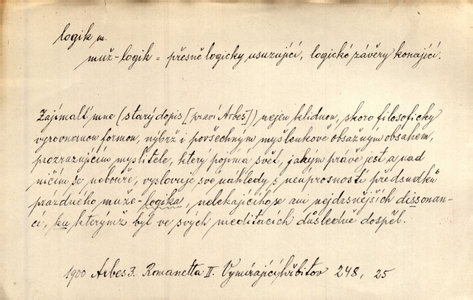 logik m.
muž-logik = přesně logicky usuzující, logické závěry konající.
Zajímalť mne (starý dopis [praví Arbes]) nejen klidnou, skoro filosoficky
vyrovnanou formou, nýbrž i povšechným myšlenkově obsažným obsahem,
prozrazujícím myslitele, který pojímá svět, jakým právě jest a nad
ničím se nebouře, vyslovuje své náhledy s neúprosností předsudků
prázdného muže-logika, nelekajícího se ani nejdrsnějších dissonan-
cí, ku kterýmž byl ve svých meditacích důsledně dospěl.
1900 Arbes J. Romanetta II. Vymírající hřbitov 248, 25